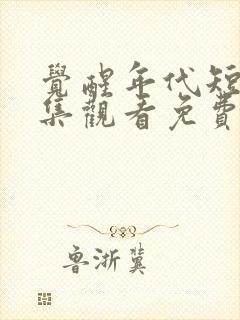 覺醒年代短
集觀看免費
魯浙冀